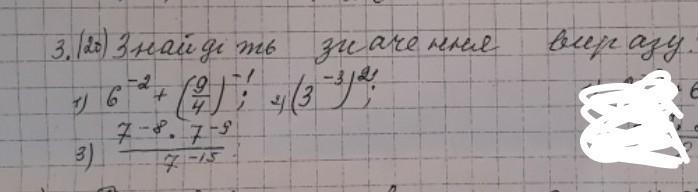 3. (2б) Знайдіть значення виразу:
1) 6⁻² + (9/4)⁻¹; 2) (3⁻³)²;
3) 7⁻⁸ · 7⁻⁹ / 7⁻¹⁵